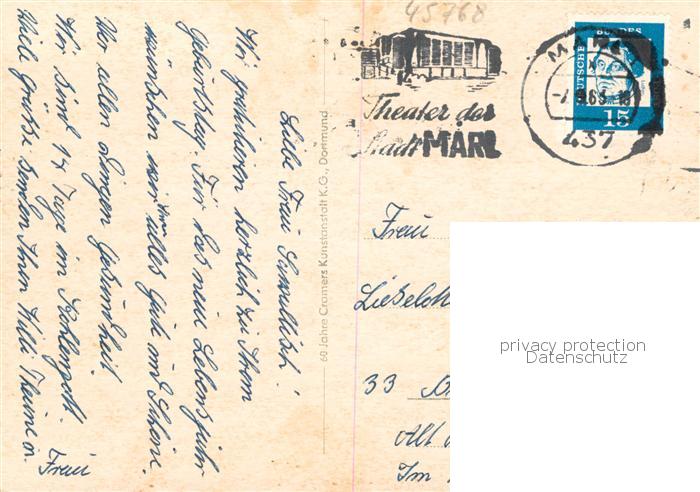 45768
Theater der
Stadt MARL
MARL
437
DEUTSCHE BUNDES
15
Liebe Frau
Wir gratulieren herzlich zu Ihrem
Geburtstag. Für das neue Lebensjahr
wünschen wir Ihnen alles Gute und Schöne.
Vor allen Dingen Gesundheit.
Wir sind 14 Tage im Kohlenpott.
Viele Grüße senden Ihnen Willi Thüme u.
Frau
60 Jahre Cramers Kunstanstalt K.G., Dortmund
Frau
33
Alt
Im
privacy protection
Datenschutz